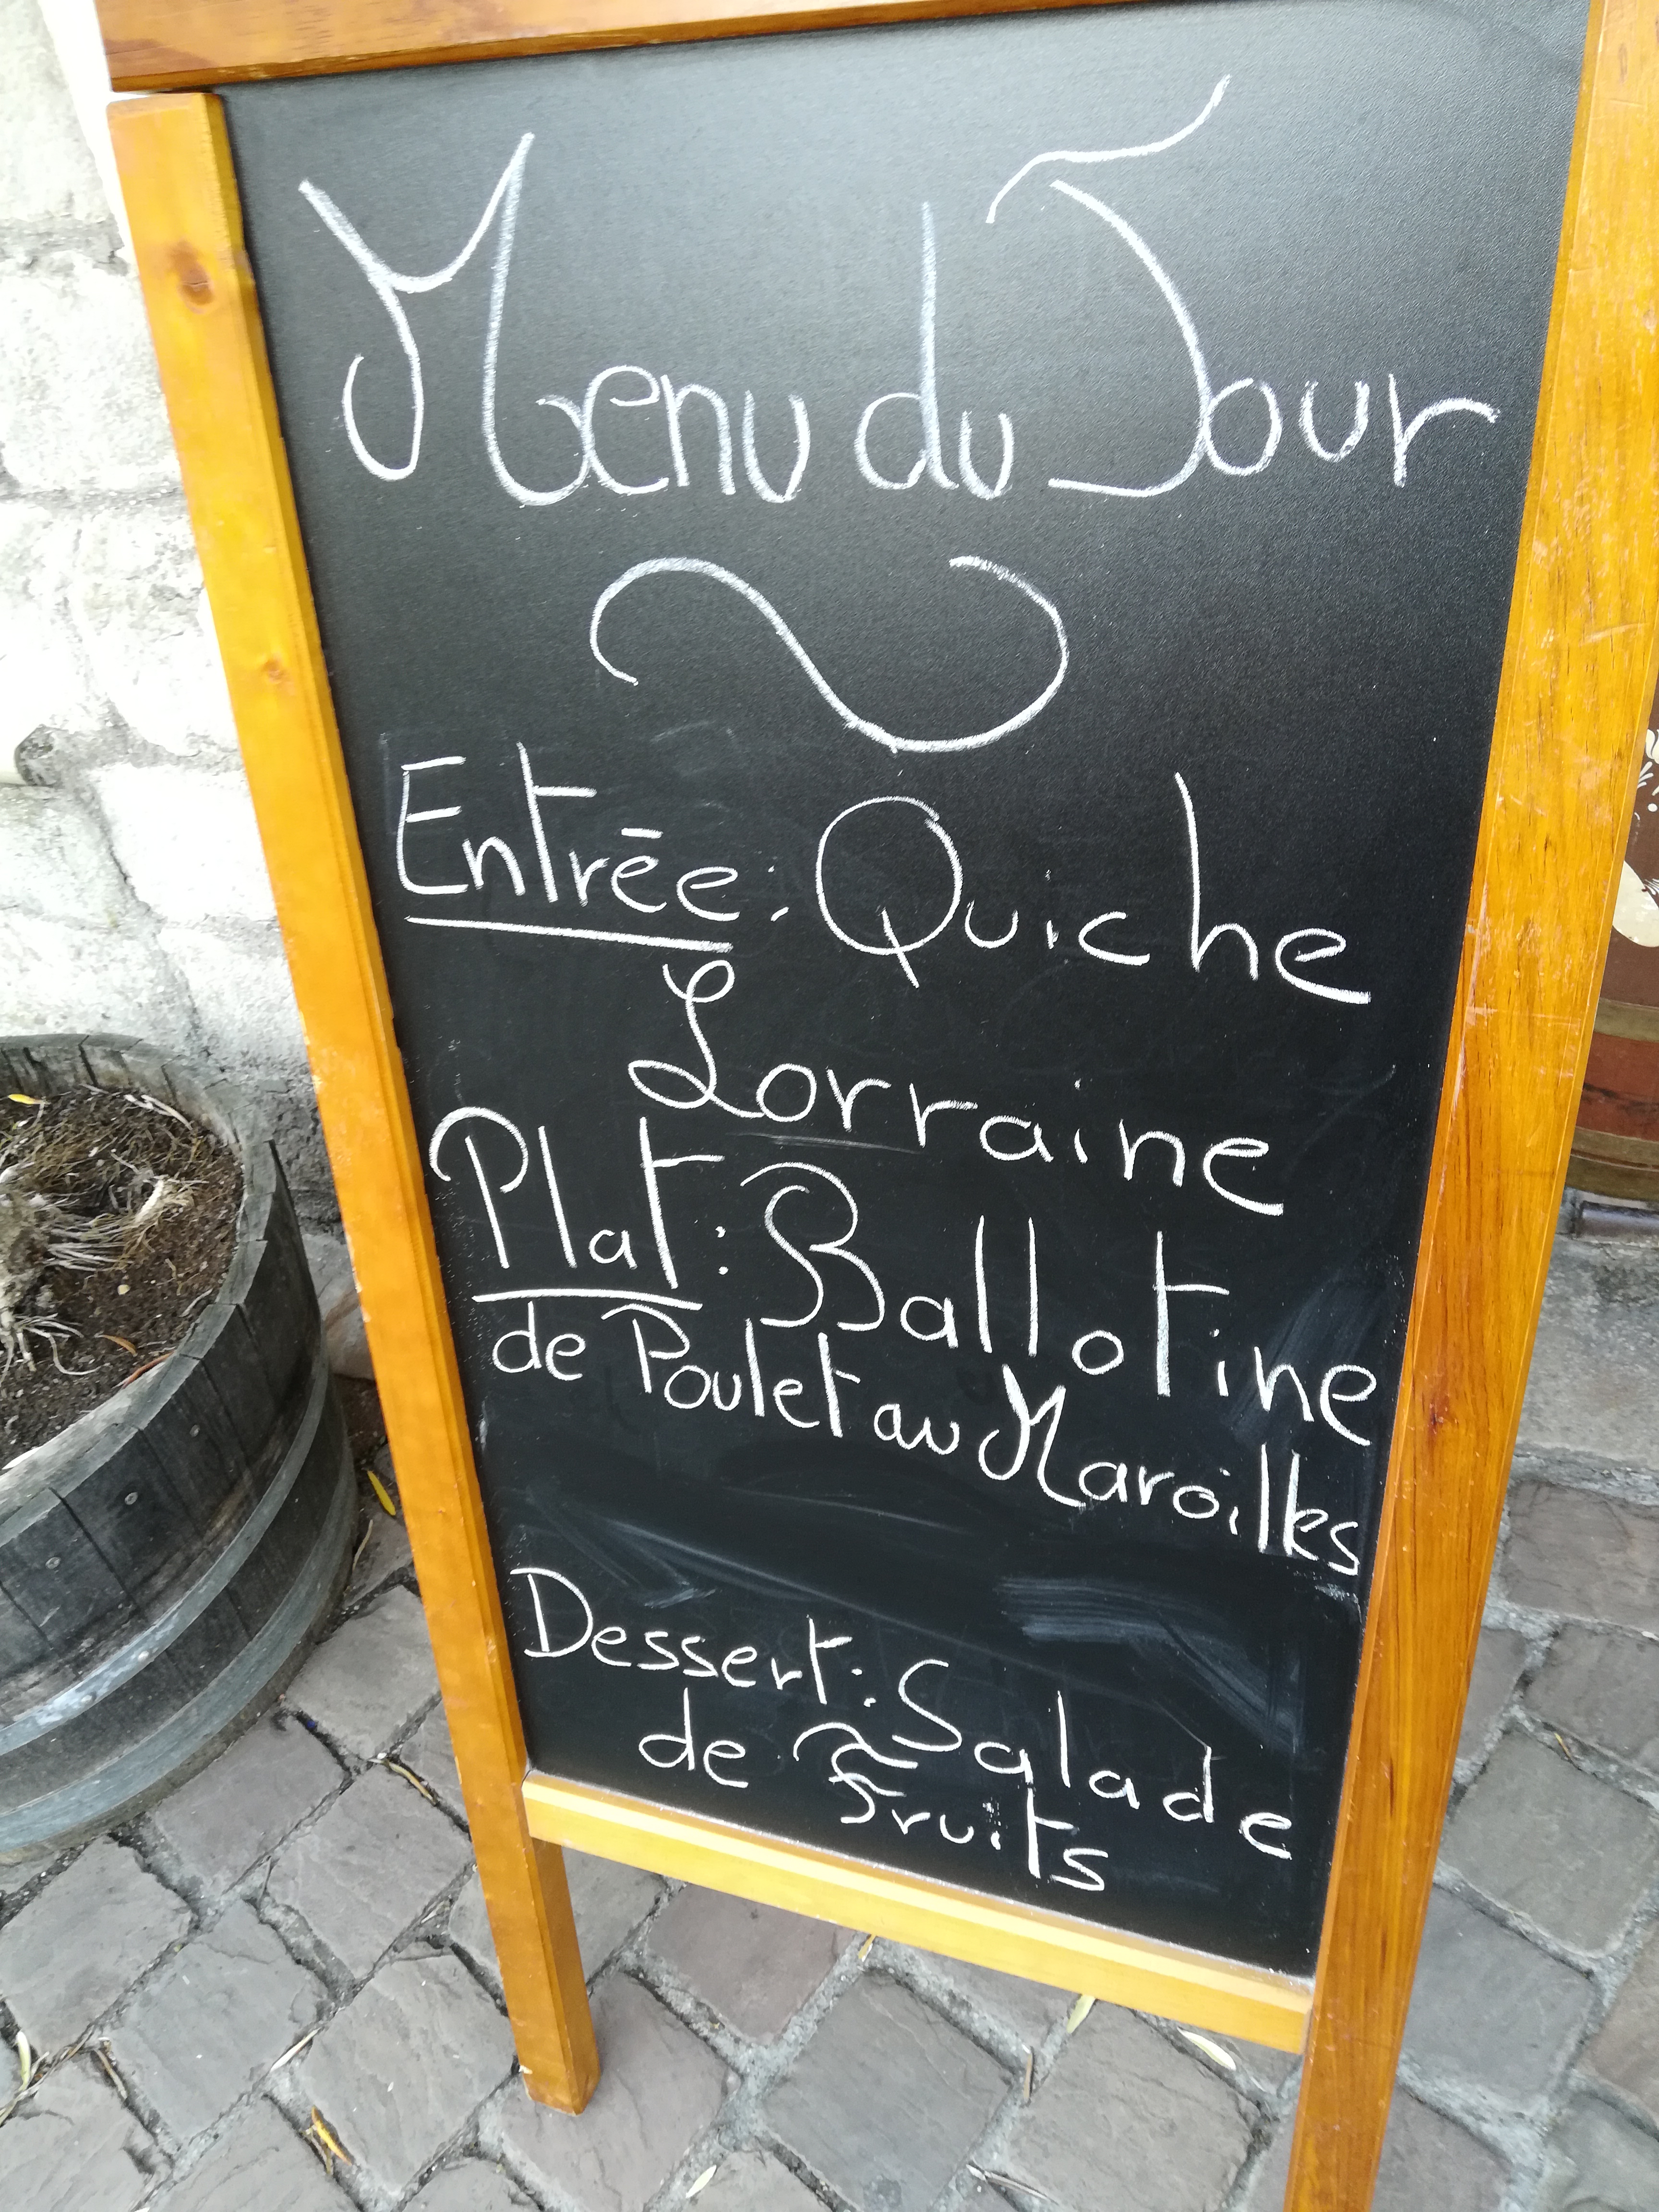 Menu du Jour
Entrée : Quiche
Lorraine
Plat : Ballotine
de Poulet au Maroilles
Dessert : Salade
de Fruits